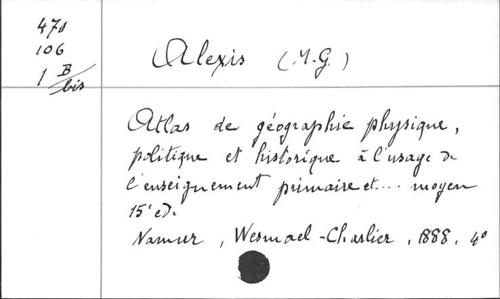 471
106
1 B/bis
Alexis (M.G.)
Atlas de géographie physique,
politique et historique à l'usage de
l'enseignement primaire et ... moyen
15e éd.
Namur, Wesmael-Charlier, 1888, 4o